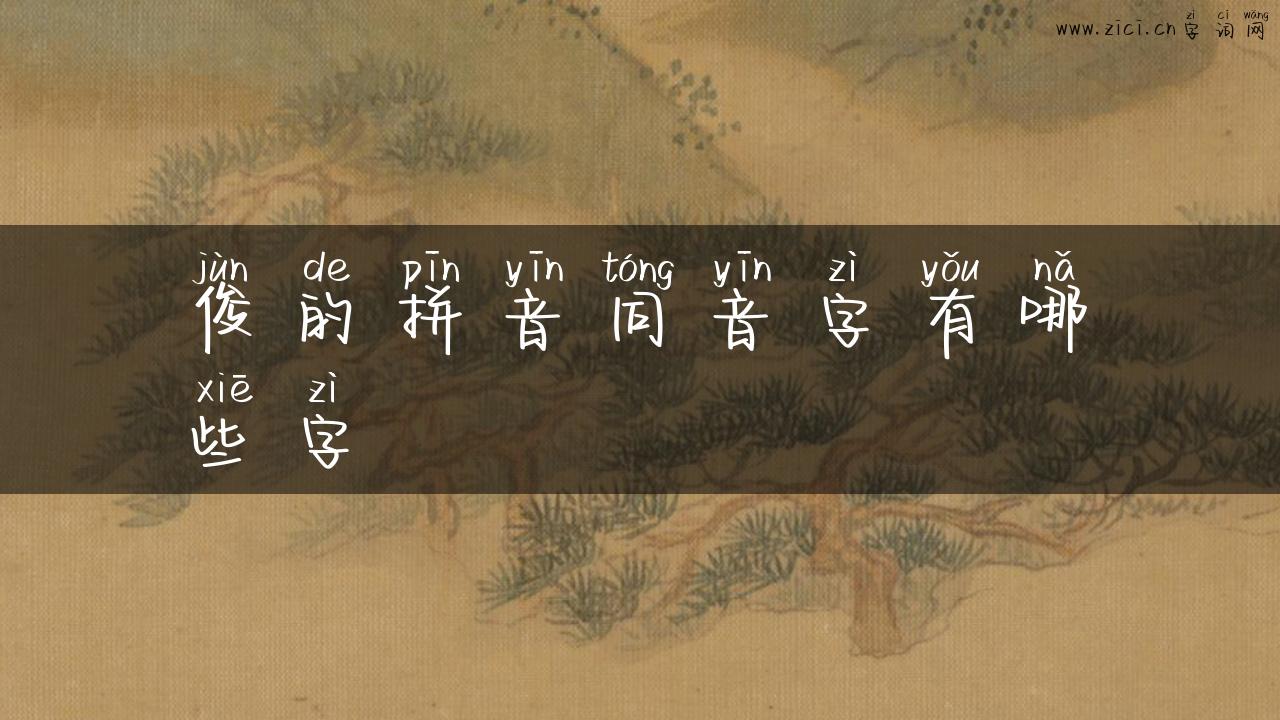 zì cí wǎng
www.zici.cn 字 词 网
jùn de pīn yīn tóng yīn zì yǒu nǎ
俊 的 拼 音 同 音 字 有 哪
xiē zì
些 字